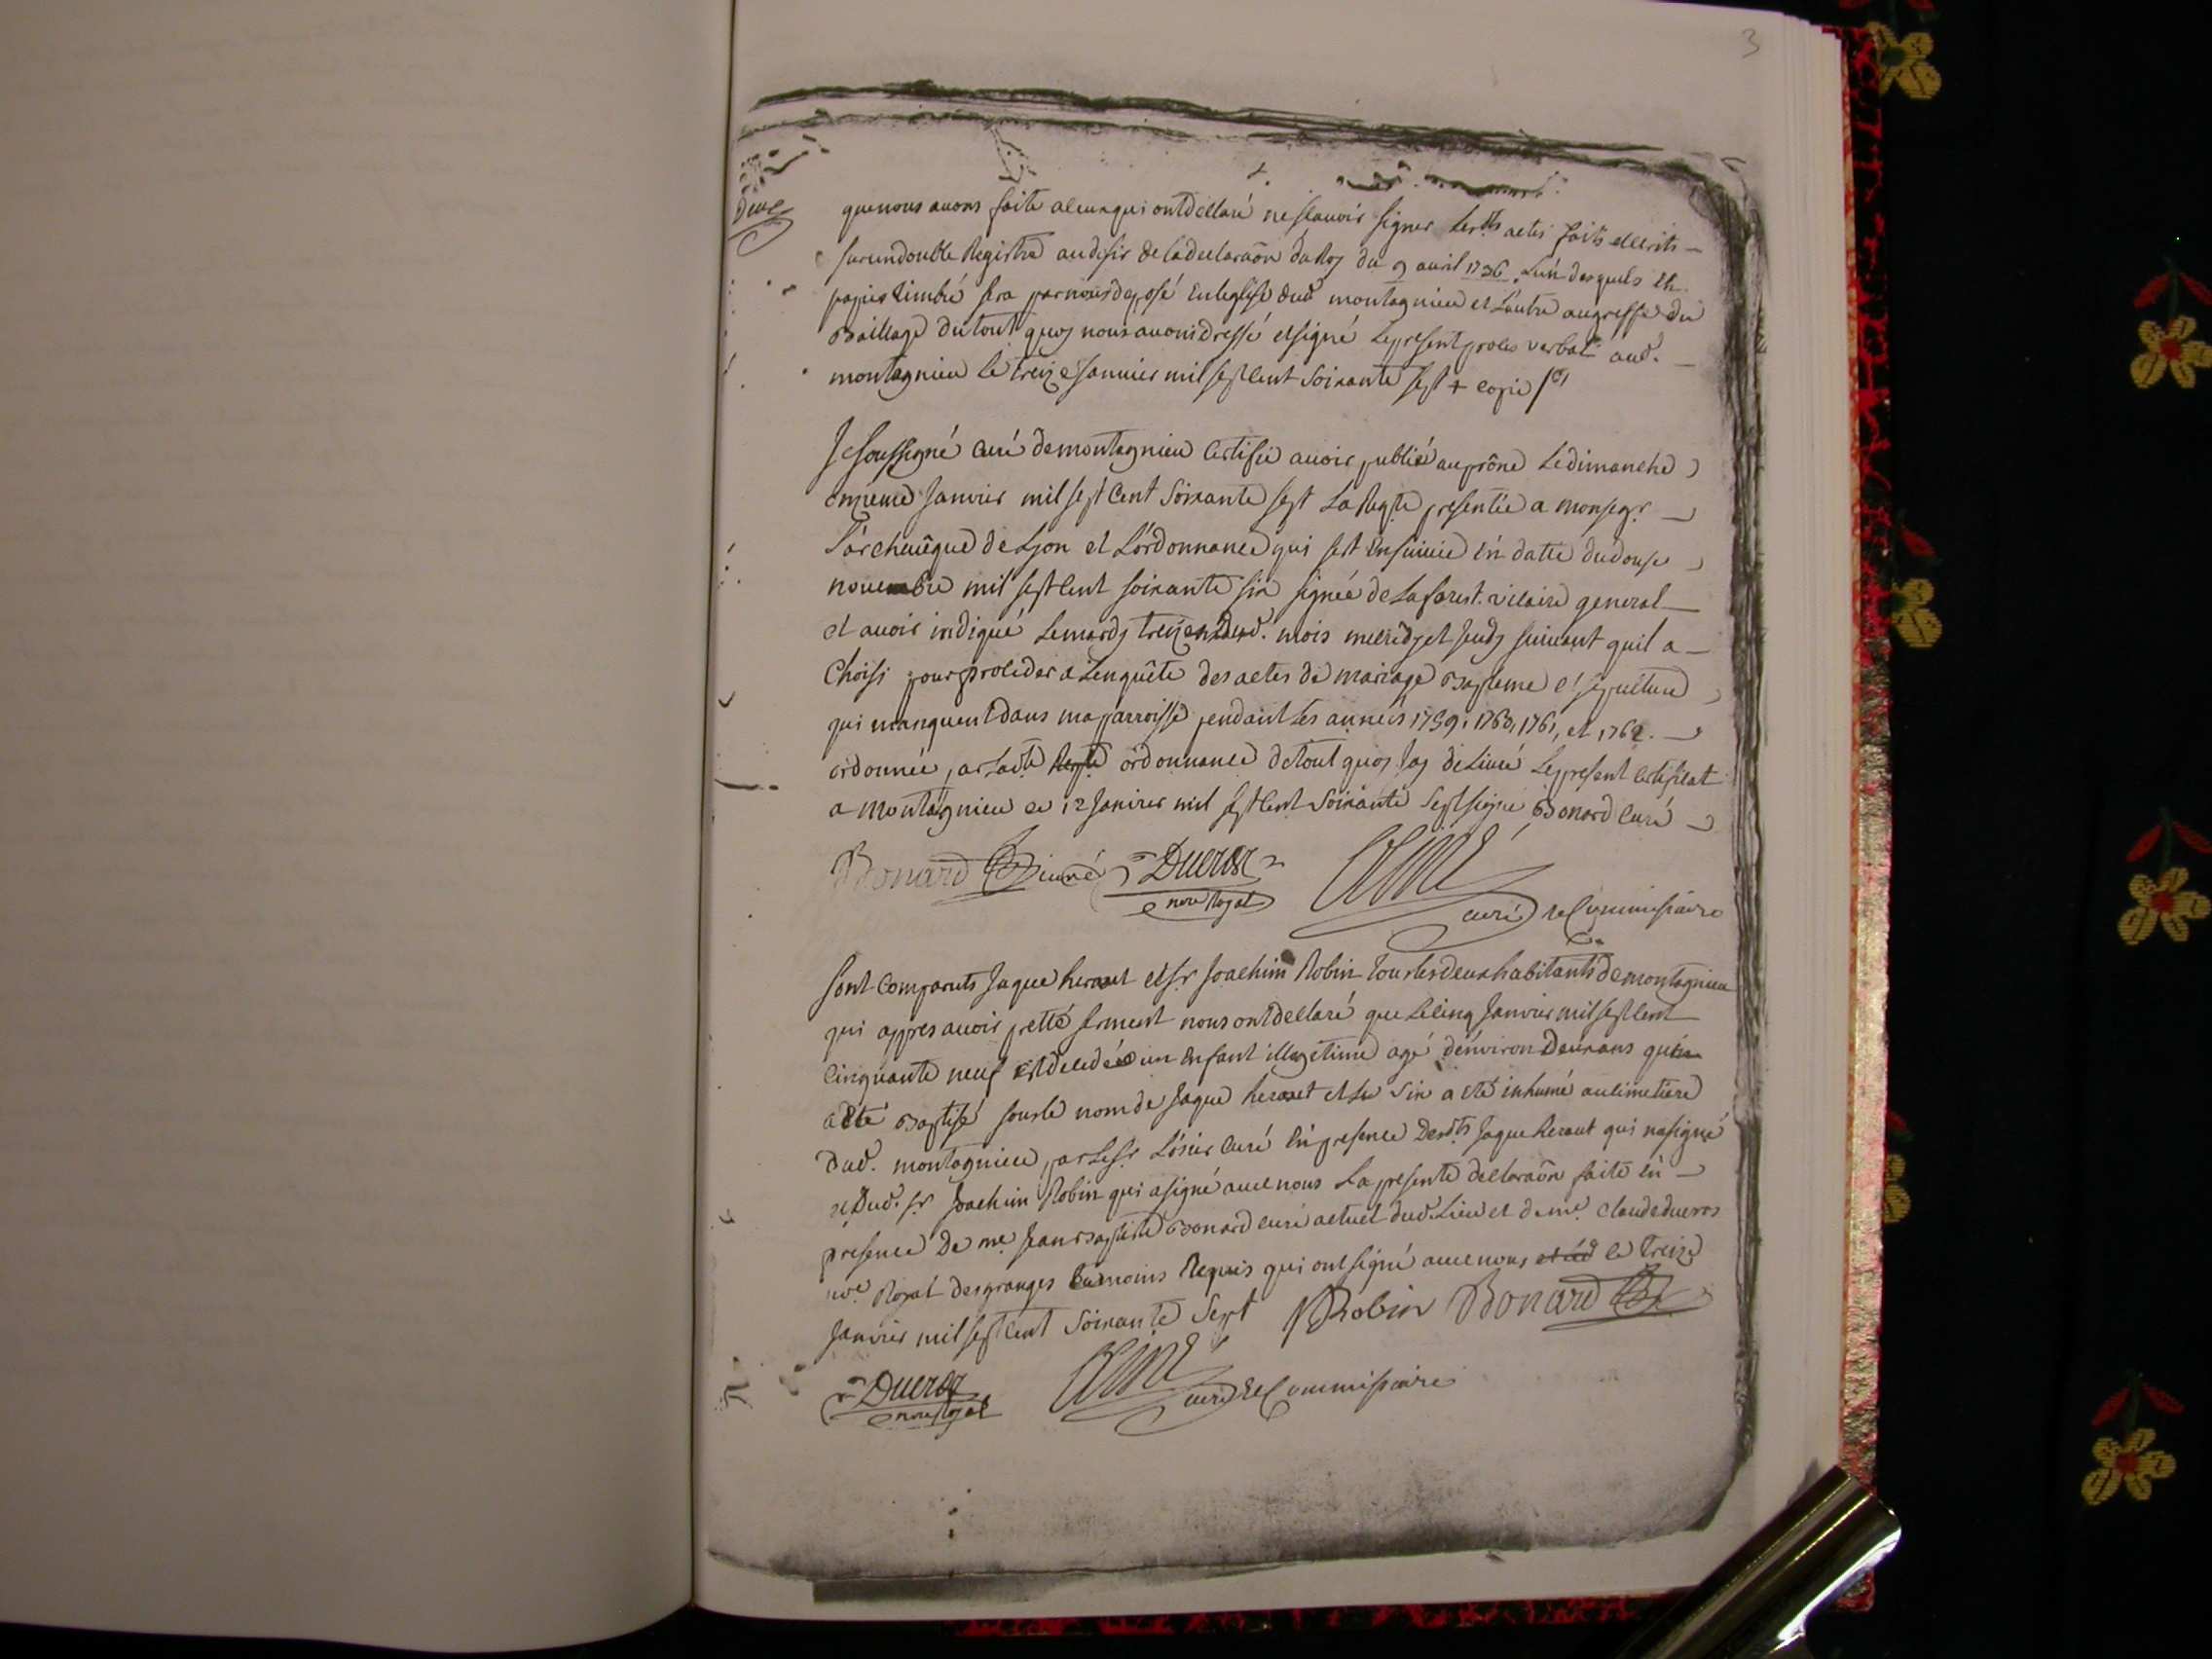 3
Deux
que nous avons faite a ceux qui ont déclaré ne scavoir signer Lesdts actes faits et ecrits
sur un double Registre au desir de la declaraõn du Roy du 9 avril 1736. L'un desquels en
papier timbré sera par nous déposé en l'eglise dud montagnieu et L'autre au greffe du
Baillage du tout quoy nous avons dressé et signé Le present proces verbal aud.
montagnieu le treize Janvier mil sept cent soixante sept + copie
Je soussigné curé de montagnieu Certifie avoir publié au prône Le dimanche
onzieme Janvier mil sept Cent Soixante sept La Reqte presentée a monsegr
L'archevêque de Lyon et L'ordonnance qui sest Ensuivie En datte du douse
novembre mil sept Cent soixante six signée de Laforest. vicaire general
et avoir indiqué Le mardy treize dud. mois mecredy et Jeudy suivant quil a
Choisi pour proceder a L'enquête des actes de mariage Bapteme et sepulture
qui manquent dans ma parroisse pendant Les années 1759, 1760, 1761, et 1762.
ordonnée par Ladte Reqte ordonnance de tout quoy Jay delivré Le present Certificat
a Montagnieu ce 12 Janvier mil sept Cent Soixante Sept signé Bonard Curé
Bonard curé Ducros
nore Royal
curé et Commissaire
Sont Comparuts Jaque heraut et Sr Joachim Robin Tous les deux habitants de montagnieu
qui appres avoir pretté serment nous ont declaré que Le cinq Janvier mil sept Cent
Cinquante neuf Est decedée un Enfant illegetime agé d'environ Deux ans qui
a été Baptisé sous le nom de Jaque heraut et Le Six a eté inhumé au cimetiere
Dud. montagnieu par Le Sr Curé En presence Desdts Jaque heraut qui na signé
et Dud. Sr Joachim Robin qui a signé avec nous La presente declaraõn faite En
presence De me Jean Baptiste Bonard curé actuel dud Lieu et de me Claude ducros
nore Royal des granges temoins Requis qui ont signé avec nous le treize
Janvier mil sept Cent Soixante Sept JRobin Bonard
Ducros
nore Royal
curé et Commissaire